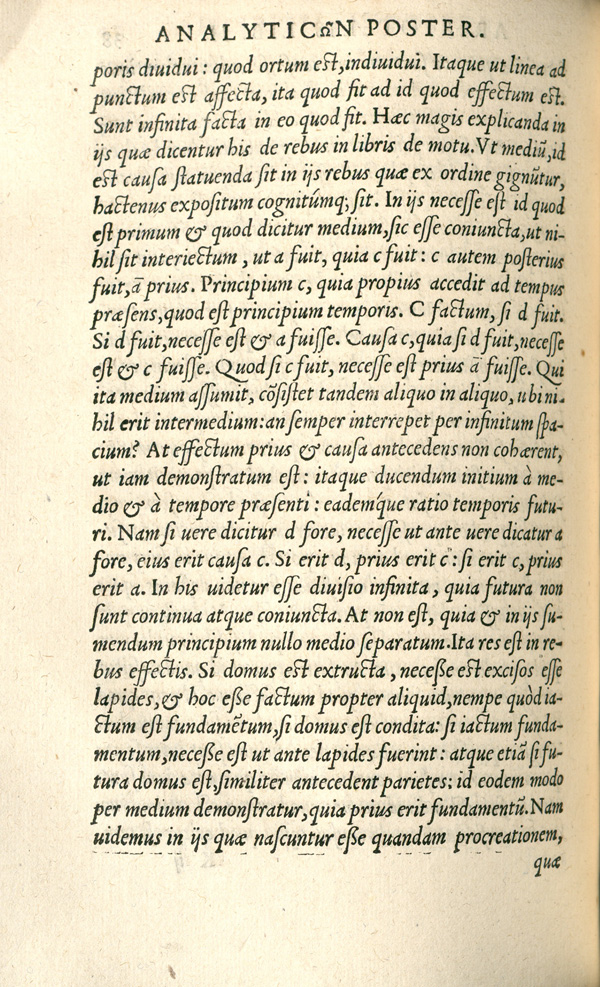 ANALYTICῶN POSTER.
poris diuidui: quod ortum est, indiuidui. Itaque ut linea ad
punctum est affecta, ita quod fit ad id quod effectum est.
Sunt infinita facta in eo quod fit. Hæc magis explicanda in
ijs quæ dicentur his de rebus in libris de motu. Vt mediũ, id
est causa statuenda sit in ijs rebus quæ ex ordine gignũtur,
hactenus expositum cognitúmq; sit. In ijs necesse est id quod
est primum & quod dicitur medium, sic esse coniuncta, ut ni-
hil sit interiectum, ut a fuit, quia c fuit: c autem posterius
fuit, ā prius. Principium c, quia propius accedit ad tempus
præsens, quod est principium temporis. C factum, si d fuit.
Si d fuit, necesse est & a fuisse. Causa c, quia si d fuit, necesse
est & c fuisse. Quod si c fuit, necesse est prius a fuisse. Qui
ita medium assumit, cõsistet tandem aliquo in aliquo, ubi ni-
hil erit intermedium: an semper interrepet per infinitum spa-
cium? At effectum prius & causa antecedens non cohærent,
ut iam demonstratum est: itaque ducendum initium à me-
dio & à tempore præsenti: eadémque ratio temporis futu-
ri. Nam si uere dicitur d fore, necesse ut ante uere dicatur a
fore, eius erit causa c. Si erit d, prius erit c: si erit c, prius
erit a. In his uidetur esse diuisio infinita, quia futura non
sunt continua atque coniuncta. At non est, quia & in ijs su-
mendum principium nullo medio separatum. Ita res est in re-
bus effectis. Si domus est extructa, necesse est excisos esse
lapides, & hoc esse factum propter aliquid, nempe quòd ia-
ctum est fundamẽtum, si domus est condita: si iactum funda-
mentum, necesse est ut ante lapides fuerint: atque etiã si fu-
tura domus est, similiter antecedent parietes: id eodem modo
per medium demonstratur, quia prius erit fundamentũ. Nam
uidemus in ijs quæ nascuntur esse quandam procreationem,
quæ